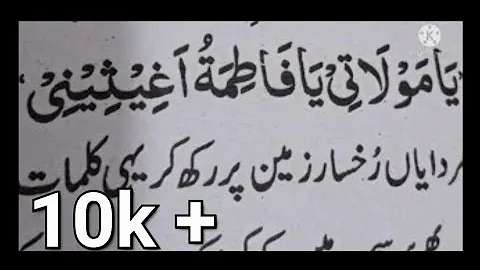 یَا مَوْلَاتِیْ یَا فَاطِمَةُ اَغِیْثِیْنِیْ
دایاں رُخسار زمین پر رکھ کر یہی کلمات
10k +